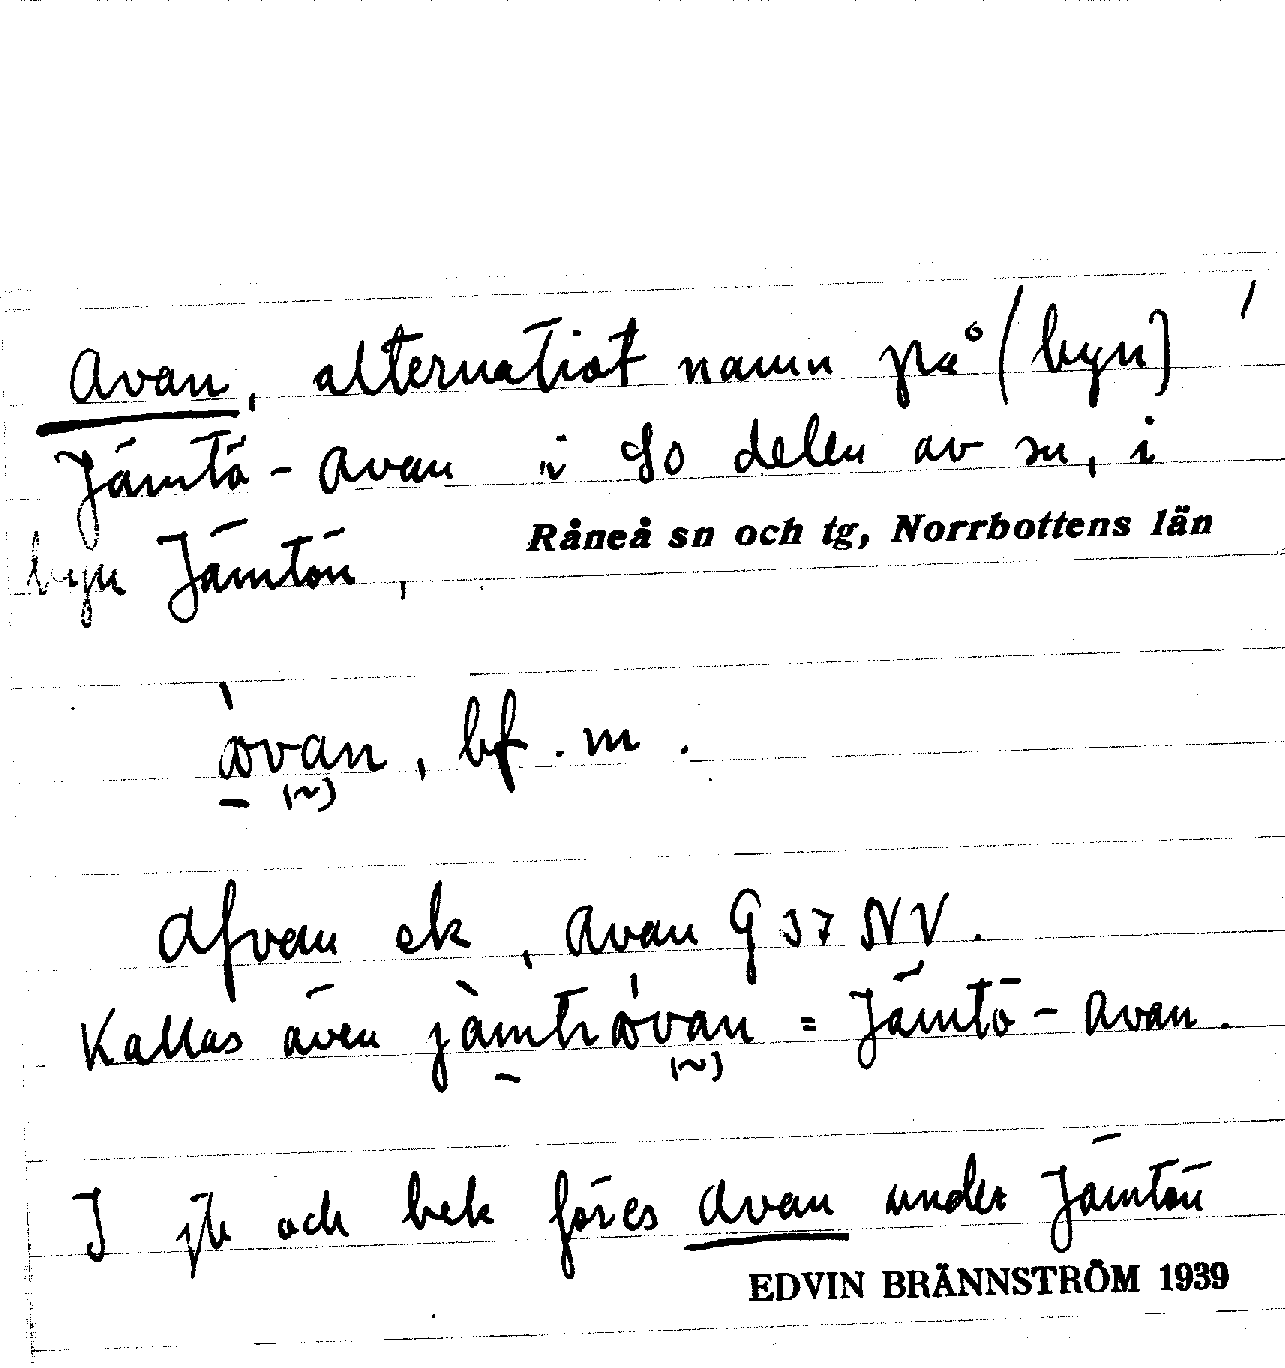 Avan, alternativt namn på (byn)
Jämtö-Avan i SO delen av sn, i
Råneå sn och tg, Norrbottens län
byn Jämtön,
, bf. m.
Afvan ek, Avan G 37 NV.
Kallas även = Jämtö-Avan.
I jb och bek föres Avan under Jämtön
EDVIN BRÄNNSTRÖM 1939